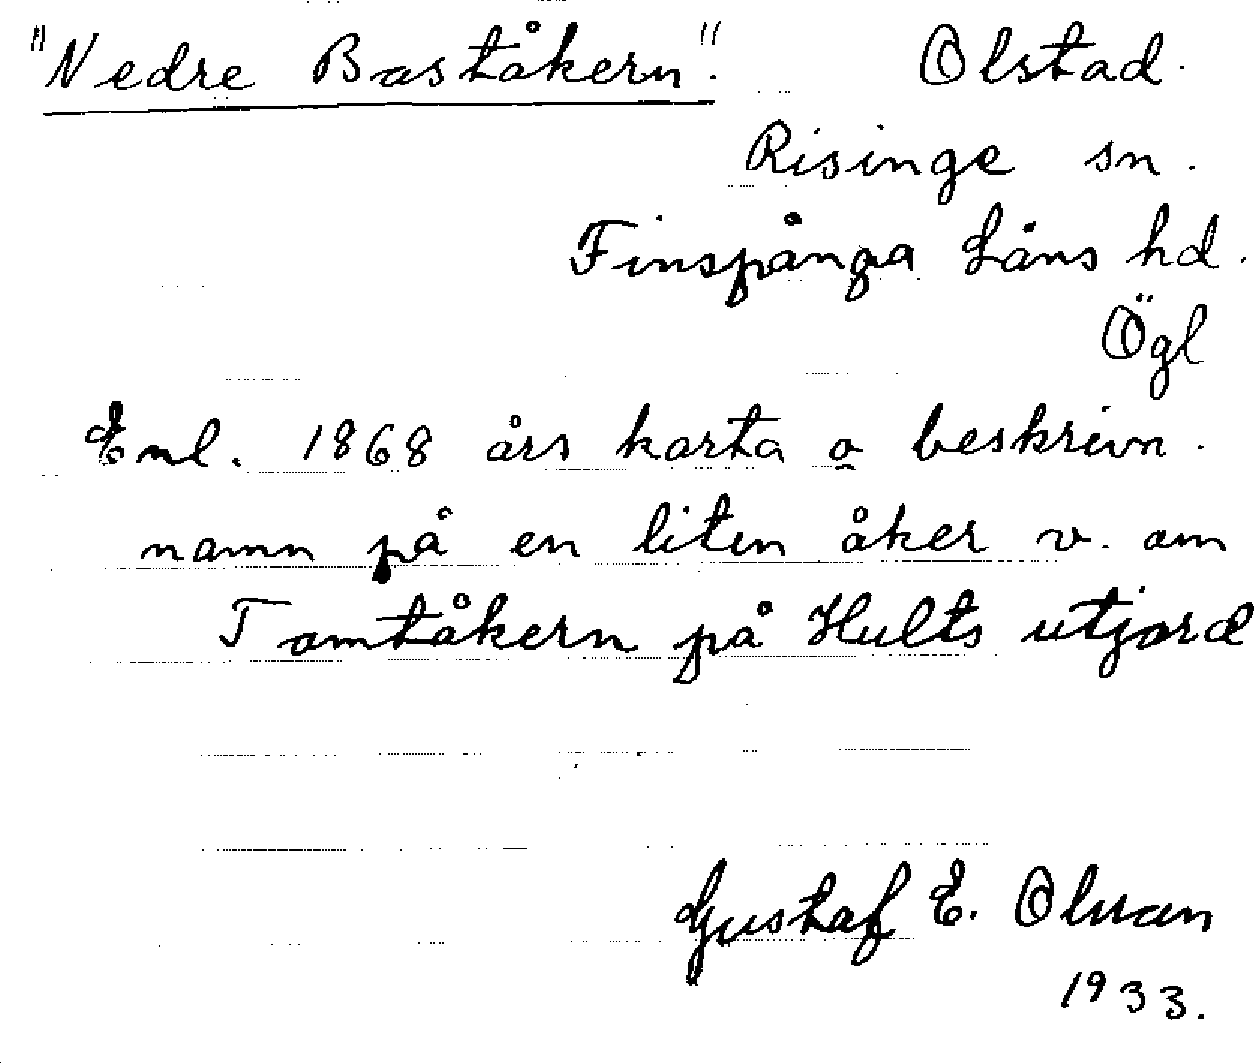 "Nedre Baståkern". Olstad.
Risinge sn.
Finspånga Läns hd.
Ögl
Enl. 1868 års karta o beskrivn.
namn på en liten åker v. om
Tomtåkern på Hults utjord
Gustaf E. Olsson
1933.